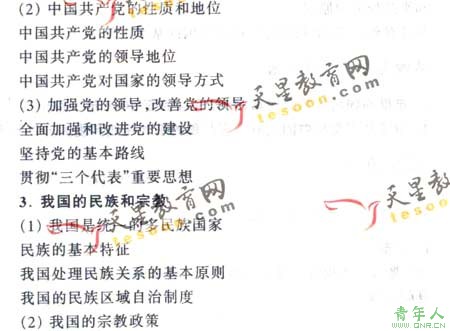 (2) 中国共产党的性质和地位
中国共产党的性质
中国共产党的领导地位
中国共产党对国家的领导方式
(3) 加强党的领导,改善党的领导
全面加强和改进党的建设
坚持党的基本路线
贯彻“三个代表”重要思想
3. 我国的民族和宗教
(1) 我国是统一的多民族国家
民族的基本特征
我国处理民族关系的基本原则
我国的民族区域自治制度
(2) 我国的宗教政策
天星教育网
tesoon.com
天星教育网
tesoon.com
天星教
tesoon
青年人
WWW.QNR.CN